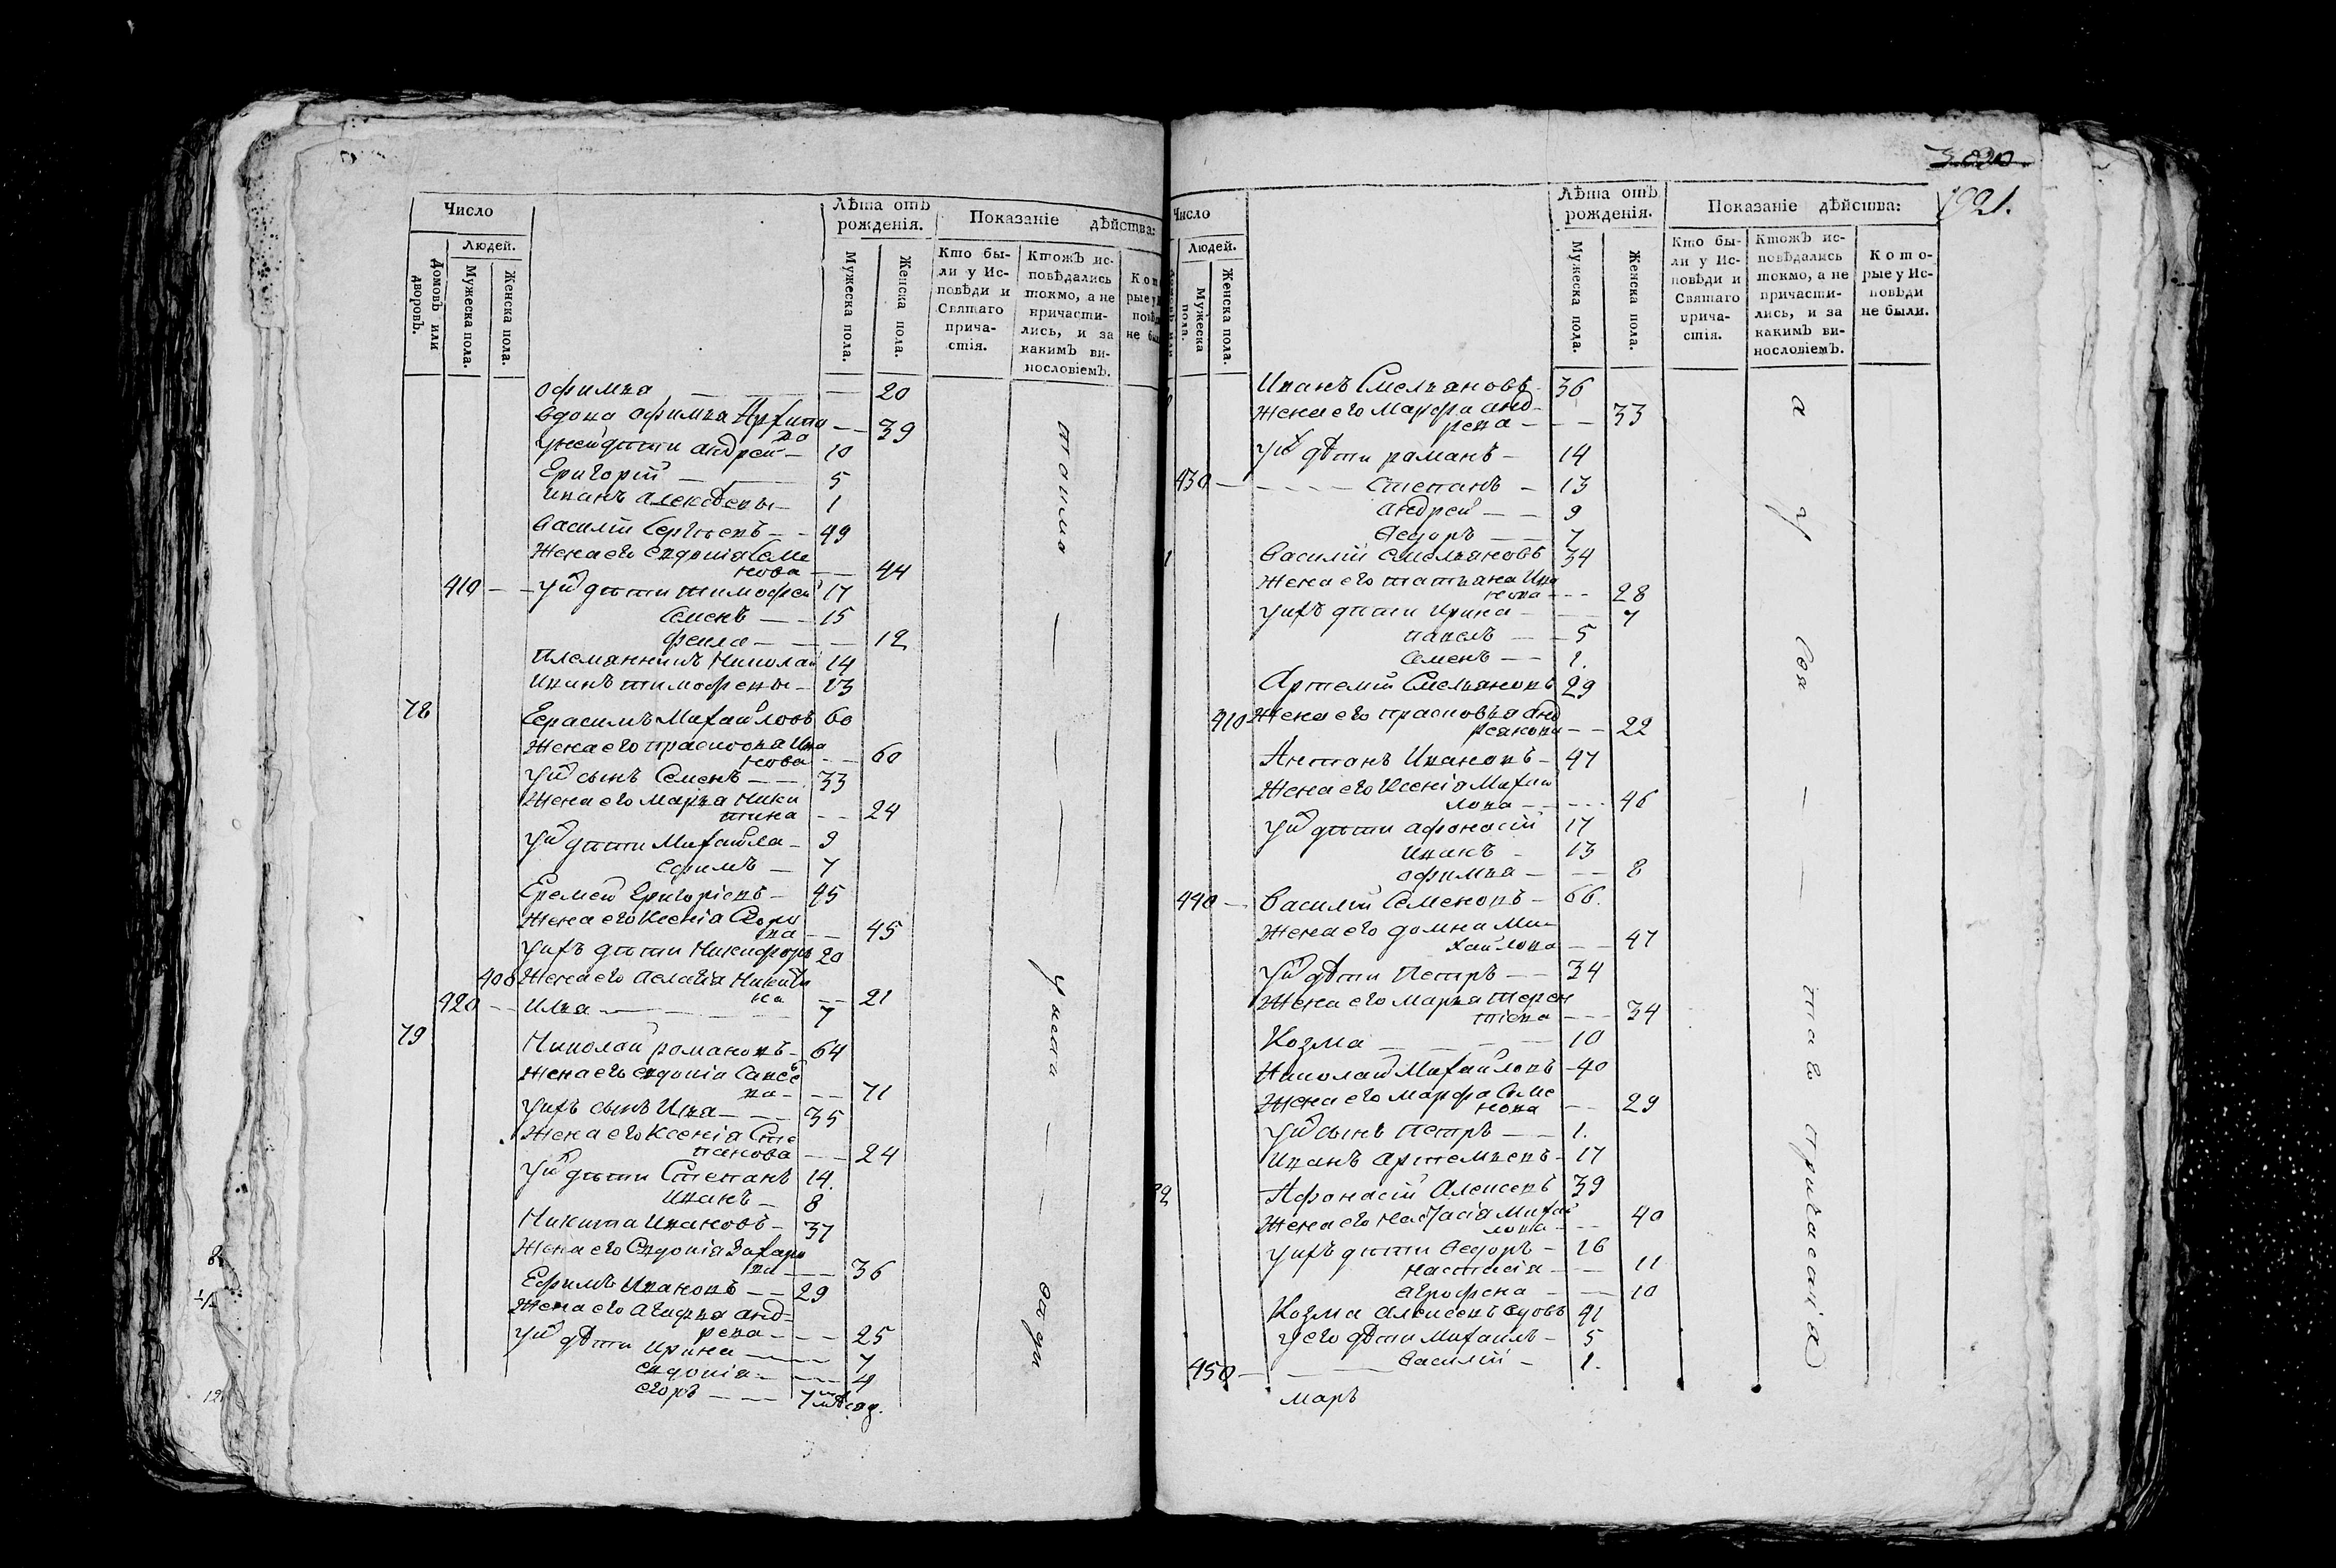 Число
Лѣта отъ рожденія.
Показаніе дѣйства:
Людей.
Домовъ или дворовъ.
Мужеска пола.
Женска пола.
Мужеска пола.
Женска пола.
Кто были у Исповѣди и Святаго причастія.
Ктожъ исповѣдались токмо, а не причастились, и за какимъ винословіемъ.
офимья — — 20
вдова офимья Архипо
ва — — 39
у ней дѣти андрей — 10
Григорій — 5
иванъ алексѣевы — 1
василій Сергѣевъ — — 49
Жена его евдокія Семе
нова — — 44
410 — — у них дѣти тимофей 17
Семенъ — — 15
фекла — — — 12
племянники Николай 14
иванъ тимофеевы — 13
78 Герасимъ Михайловъ 60
Жена его прасковья Ива
нова — — 60
у них сынъ Семенъ — — 33
Жена его Марья Ники
тина — — 24
у них дѣти Михайла — 9
ефимъ — 7
Еремей Григорієвъ — 45
Жена его Ксенія Его
ва — — 45
у нихъ дѣти Никифоръ 20
400 Жена его Пелагія Никити
на — — 21
420 — — Илья — — — 7
79 Николай романовъ — 64
Жена его евдокія Савсѣ
ва — — — 71
у нихъ сынъ Ива — — 35
Жена его Ксенія Сте
панова — — 24
у них дѣти Степанъ 14.
иванъ — 8
Никита Ивановъ — 37
Жена его Евдокія Захаро
ва — — 36
Ефимъ Ивановъ — — 29
Жена его Агафья анд-
реева — — — 25
у них дѣти Ирина — — 7
евдокія — — — 4
егоръ — — — 7 мѣсяц.
тоимо — — — — у исп — — овѣди
3820
1921.
Число
Лѣта отъ рожденія.
Показаніе дѣйства:
Людей.
Мужеска пола.
Женска пола.
Мужеска пола.
Женска пола.
Кто были у Исповѣди и Святаго причастія.
Ктожъ исповѣдались токмо, а не причастились, и за какимъ винословіемъ.
Которые у Исповѣди не были.
Иванъ Емельяновъ — 36
Жена его Марфа анд-
реева — — — 33
у них дѣти романъ — 14
430 — — — — Степанъ — 13
андрей — — 9
Ѳедоръ — — 7
Василій емельяновъ 34
Жена его татьяна Ива
нова — — — 28
у нихъ дѣти Ирина — — 7
павелъ — — 5
Семенъ — — 1.
Артемій Емельяновъ 29
410 Жена его прасковья анд
реянова — — 22
Антонъ Ивановъ — 47
Жена его Ксенія Михай
лова — — — 46
у них дѣти афонасій 17
иванъ — 13
офимья — — — 8
440 — Василій Семеновъ — 66.
Жена его домна Ми-
хайлова — — 47
у них дѣти Петръ — — 34
Жена его Марья терен
тіева — — — 34
Козма — — — 10
Николай Михайловъ — 40
Жена его марфа Семе
нова — — 29
у них сынъ петръ — — 1.
иванъ артемьевъ — 17
Афонасій Алексеевъ 39
Жена его Настасія Михай
лова — — 40
у нихъ дѣти Ѳедоръ — 16
Настасія — — 11
агрофена — — — 10
Козма алексеевъ вдовъ 41
у его дѣти Михаилъ — 5
450 — — Василій — 1.
Маръ